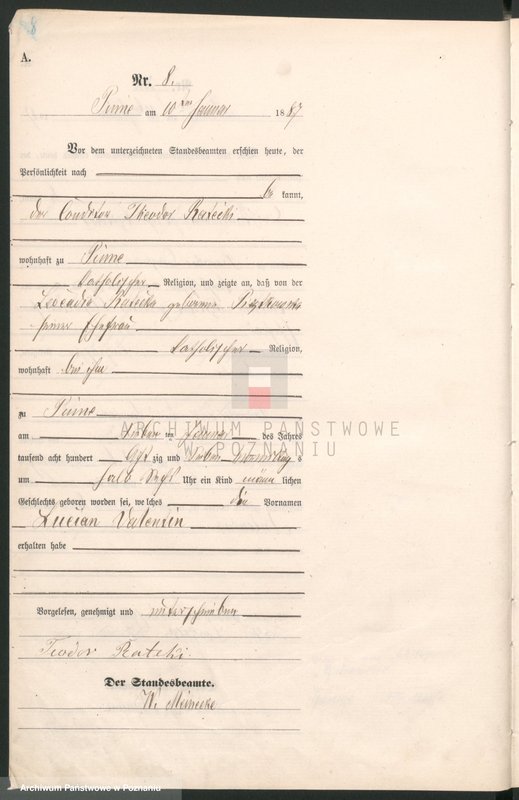 A.
Nr. 8.
Pinne am 10ten Januar 1887
Vor dem unterzeichneten Standesbeamten erschien heute, der
Persönlichkeit nach
be kannt,
der Conditor Theodor Ratecki
wohnhaft zu Pinne
katholischer Religion, und zeigte an, daß von der
Leocadia Ratecka geborenen
seiner Ehefrau
katholischer Religion,
wohnhaft bei ihm
zu Pinne
am sieben ten Januar des Jahres
tausend acht hundert acht zig und sieben Vormittag s
um halb Uhr ein Kind männ lichen
Geschlechts geboren worden sei, welches die Vornamen
Lucian Valentin
erhalten habe
Vorgelesen, genehmigt und unterschrieben
Teodor Ratecki.
Der Standesbeamte.
W. Meinecke
ARCHIWUM PAŃSTWOWE
W POZNANIU
Archiwum Państwowe w Poznaniu